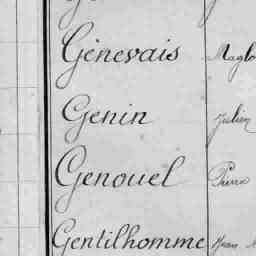 Génevais Maglo
Genin Julien
Genouel Pierre
Gentilhomme Jean